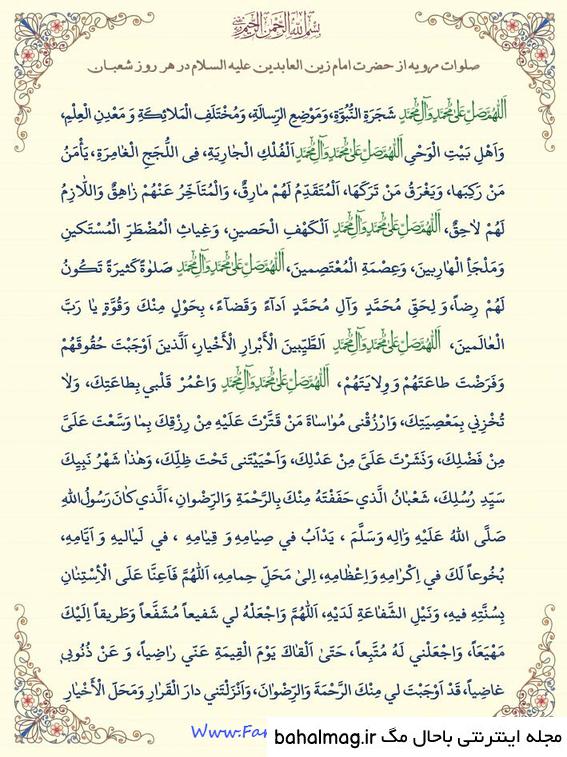 بسم الله الرحمن الرحیم
صلوات مرویه از حضرت امام زین العابدین علیه السلام در هر روز شعبان
اَللّٰهُمَّ صَلِّ عَلیٰ مُحَمَّدٍ وَآلِ مُحَمَّدٍ شَجَرَةِ النُّبُوَّةِ، وَمَوْضِعِ الرِّسالَةِ، وَمُخْتَلَفِ الْمَلائِكَةِ وَ مَعْدِنِ الْعِلْمِ،
وَاَهْلِ بَيْتِ الْوَحْيِ اَللّٰهُمَّ صَلِّ عَلیٰ مُحَمَّدٍ وَآلِ مُحَمَّدٍ اَلْفُلْكِ الْجارِيَةِ، فِی اللُّجَجِ الْغامِرَةِ، يَأْمَنُ
مَنْ رَكِبَها، وَيَغْرَقُ مَنْ تَرَكَهَا، اَلْمُتَقَدِّمُ لَهُمْ مارِقٌ، وَالْمُتَاَخِّرُ عَنْهُمْ زاهِقٌ وَاللّازِمُ
لَهُمْ لاحِقٌ، اَللّٰهُمَّ صَلِّ عَلیٰ مُحَمَّدٍ وَآلِ مُحَمَّدٍ اَلْكَهْفِ الْحَصينِ، وَغِياثِ الْمُضْطَرِّ الْمُسْتَكينِ
وَمَلْجَأِ الْهارِبينَ، وَعِصْمَةِ الْمُعْتَصِمينَ، اَللّٰهُمَّ صَلِّ عَلیٰ مُحَمَّدٍ وَآلِ مُحَمَّدٍ صَلوٰةً كَثيرَةً تَكُونُ
لَهُمْ رِضاً، وَ لِحَقِّ مُحَمَّدٍ وَآلِ مُحَمَّدٍ اَداۤءً وَقَضاۤءً، بِحَوْلٍ مِنْكَ وَقُوَّةٍ يٰا رَبَّ
الْعٰالَمينَ، اَللّٰهُمَّ صَلِّ عَلیٰ مُحَمَّدٍ وَآلِ مُحَمَّدٍ اَلطَّيِّبينَ الْأَبْرارِ الْأَخْيارِ، اَلَّذينَ اَوْجَبْتَ حُقُوقَهُمْ
وَفَرَضْتَ طاعَتَهُمْ وَوِلايَتَهُمْ، اَللّٰهُمَّ صَلِّ عَلیٰ مُحَمَّدٍ وَآلِ مُحَمَّدٍ وَاعْمُرْ قَلْبي بِطاعَتِكَ، وَلاٰ
تُخْزِني بِمَعْصِيَتِكَ، وَارْزُقْنی مُوٰاسٰاةَ مَنْ قَتَّرْتَ عَلَيْهِ مِنْ رِزْقِكَ بِمٰا وَسَّعْتَ عَلَیَّ
مِنْ فَضْلِكَ، وَنَشَرْتَ عَلَیَّ مِنْ عَدْلِكَ، وَاَحْيَيْتَنی تَحْتَ ظِلِّكَ، وَهٰذٰا شَهْرُ نَبِيِكَ
سَيِّدِ رُسُلِكَ، شَعْبٰانُ الَّذي حَفَفْتَهُ مِنْكَ بِالرَّحْمَةِ وَالرِّضْوانِ، اَلَّذي كٰانَ رَسُولُ اللهِ
صَلَّی اللهُ عَلَيْهِ وَاٰلِهِ وَسَلَّمَ ، يَدْاَبُ في صِيٰامِهِ وَ قِيٰامِهِ ، في لَيٰاليهِ وَ اَيّٰامِهِ،
بُخُوعاً لَكَ في اِكْرٰامِهِ وَ اِعْظٰامِهِ، اِلیٰ مَحَلِّ حِمامِهِ، اَللّٰهُمَّ فَاَعِنَّا عَلَی الْأِسْتِنٰانِ
بِسُنَّتِهِ فيهِ، وَنَيْلِ الشَّفٰاعَةِ لَدَيْهِ، اَللّٰهُمَّ وَاجْعَلْهُ لي شَفيعاً مُشَفَّعاً وَطَريقاً اِلَيْكَ
مَهْيَعاً، وَاجْعَلْني لَهُ مُتَّبِعاً، حَتّیٰ اَلْقاكَ يَوْمَ الْقِيٰمَةِ عَنّي رٰاضِياً، وَ عَنْ ذُنُوبی
غاضِياً، قَدْ اَوْجَبْتَ لي مِنْكَ الرَّحْمَةَ وَالرِّضْوٰانَ، وَاَنْزَلْتَني دارَ الْقَرٰارِ وَمَحَلَ الْأَخْيارِ
www.Far
مجله اینترنتی باحال مگ bahalmag.ir